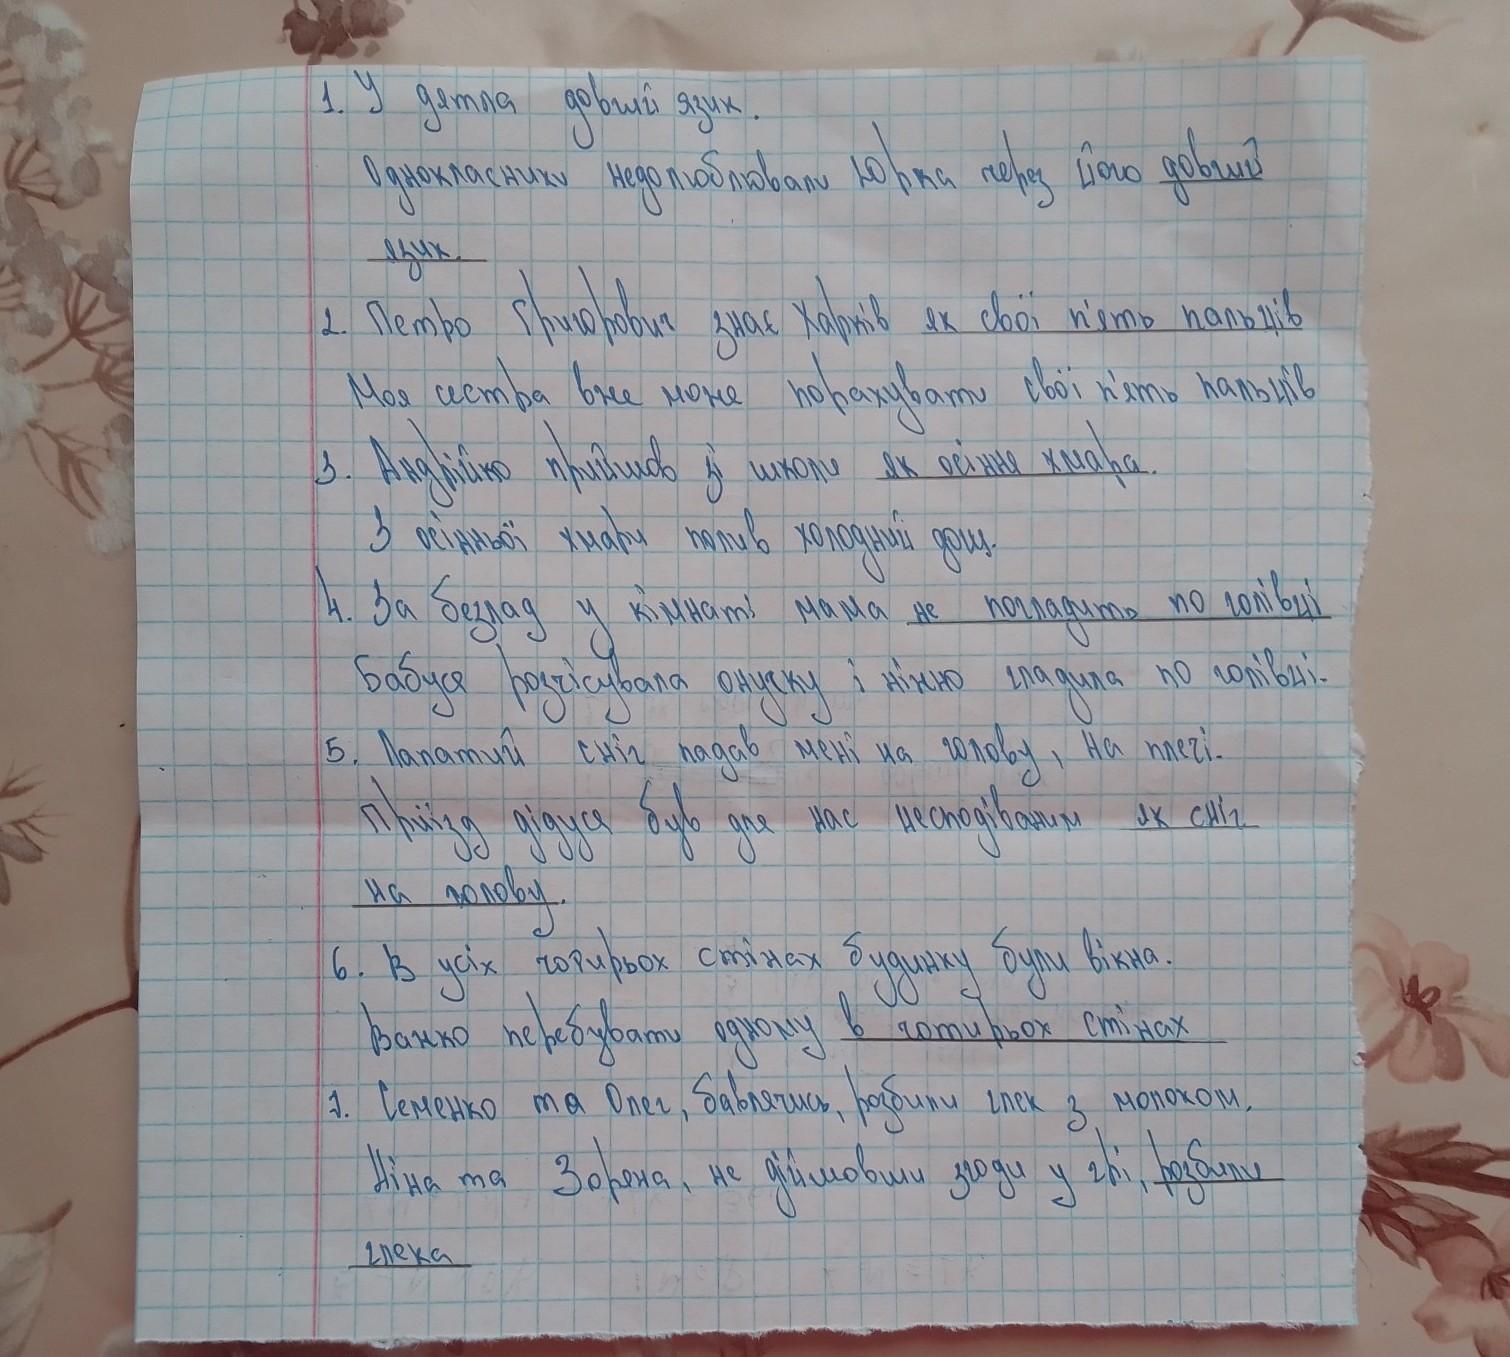 1. У дятла довгий язик.
Однокласники недолюблювали Юрка через його довгий
язик.
2. Петро Григорович знає Харків як свої п'ять пальців
Моя сестра вже може порахувати свої п'ять пальців
3. Андрійко прийшов зі школи як осіння хмара.
З осінньої хмари полив холодний дощ.
4. За безлад у кімнаті мама не погладить по голівці
Бабуся розчісувала онучку і ніжно гладила по голівці.
5. Лапатий сніг падав мені на голову, на плечі.
Приїзд дідуся був для нас несподіваним як сніг
на голову.
6. В усіх чотирьох стінах будинку були вікна.
Важко перебувати одному в чотирьох стінах
7. Семенко та Олег, бавлячись, розбили глек з молоком.
Ніна та Зоряна, не дійшовши згоди у грі, розбили
глека